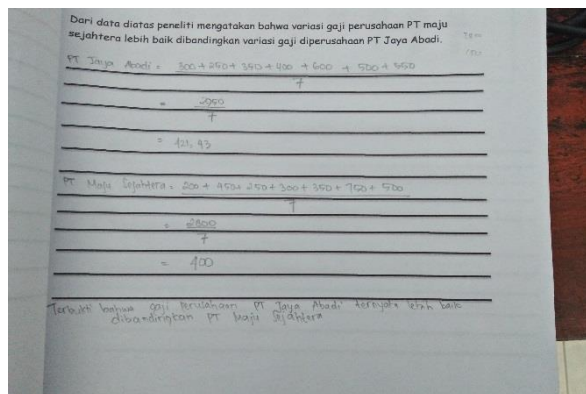 Dari data diatas peneliti mengatakan bahwa variasi gaji perusahaan PT maju
sejahtera lebih baik dibandingkan variasi gaji diperusahaan PT Jaya Abadi.
PT Jaya Abadi = 300 + 250 + 350 + 400 + 600 + 500 + 550
7
= 2950
7
= 421,43
PT Maju Sejahtera = 200 + 450 + 250 + 300 + 350 + 750 + 500
7
= 2800
7
= 400
Terbukti bahwa gaji perusahaan PT Jaya Abadi ternyata lebih baik
dibandingkan PT Maju Sejahtera